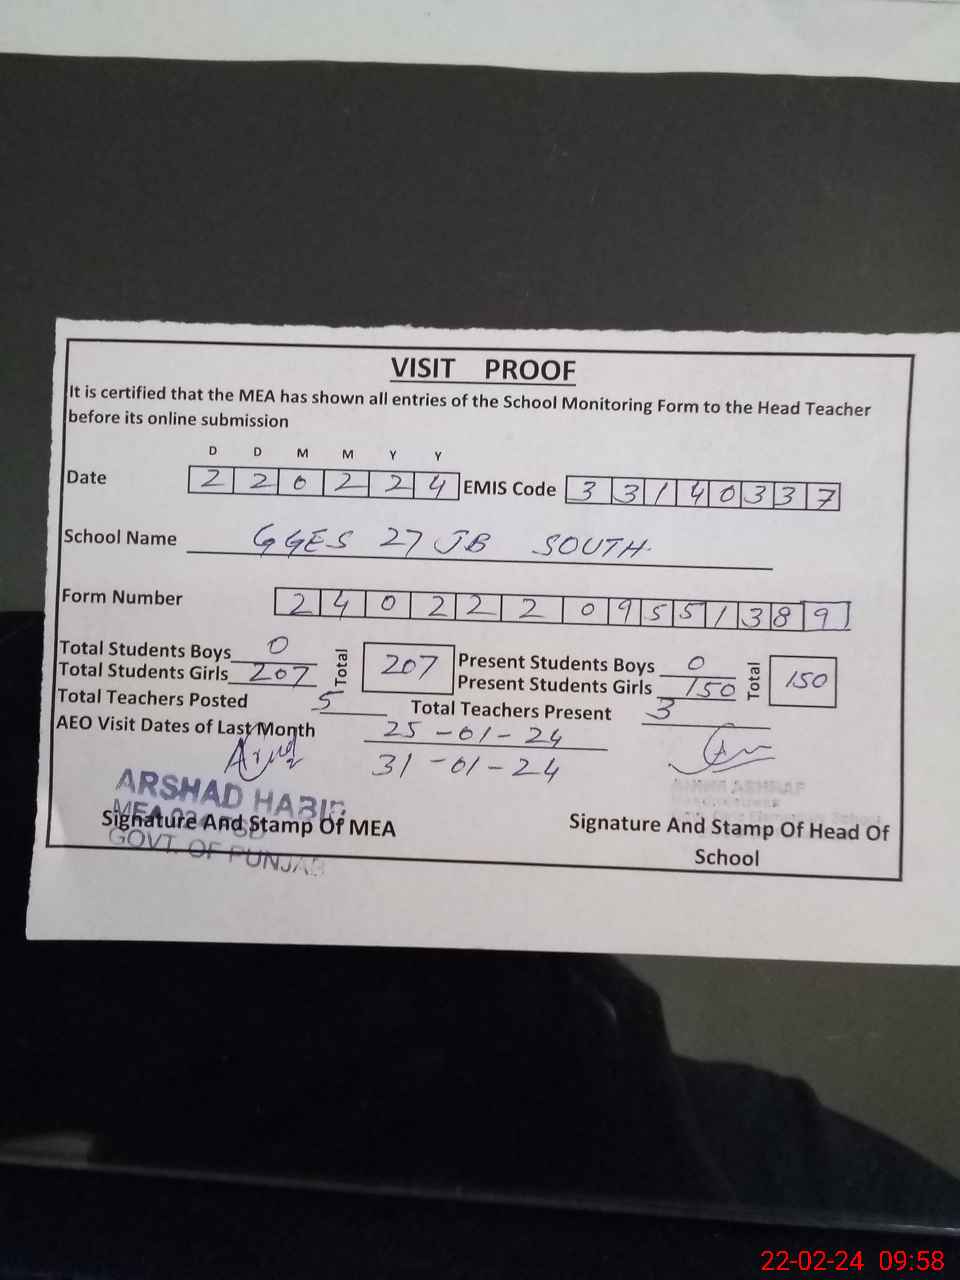 VISIT PROOF
It is certified that the MEA has shown all entries of the School Monitoring Form to the Head Teacher
before its online submission
D D M M Y Y
Date 2 2 0 2 2 4 EMIS Code 3 3 1 4 0 3 3 7
School Name GGES 27 JB SOUTH
Form Number 2 4 0 2 2 2 0 9 5 5 1 3 8 9
Total Students Boys 0 Total 207 Present Students Boys 0 Total 150
Total Students Girls 207 Present Students Girls 150
Total Teachers Posted 5 Total Teachers Present 3
AEO Visit Dates of Last Month 25-01-24
31-01-24
ARSHAD HABIB
MEA
GOVT. OF PUNJAB
Signature And Stamp Of MEA
ASHRAF
Signature And Stamp Of Head Of
School
22-02-24 09:58